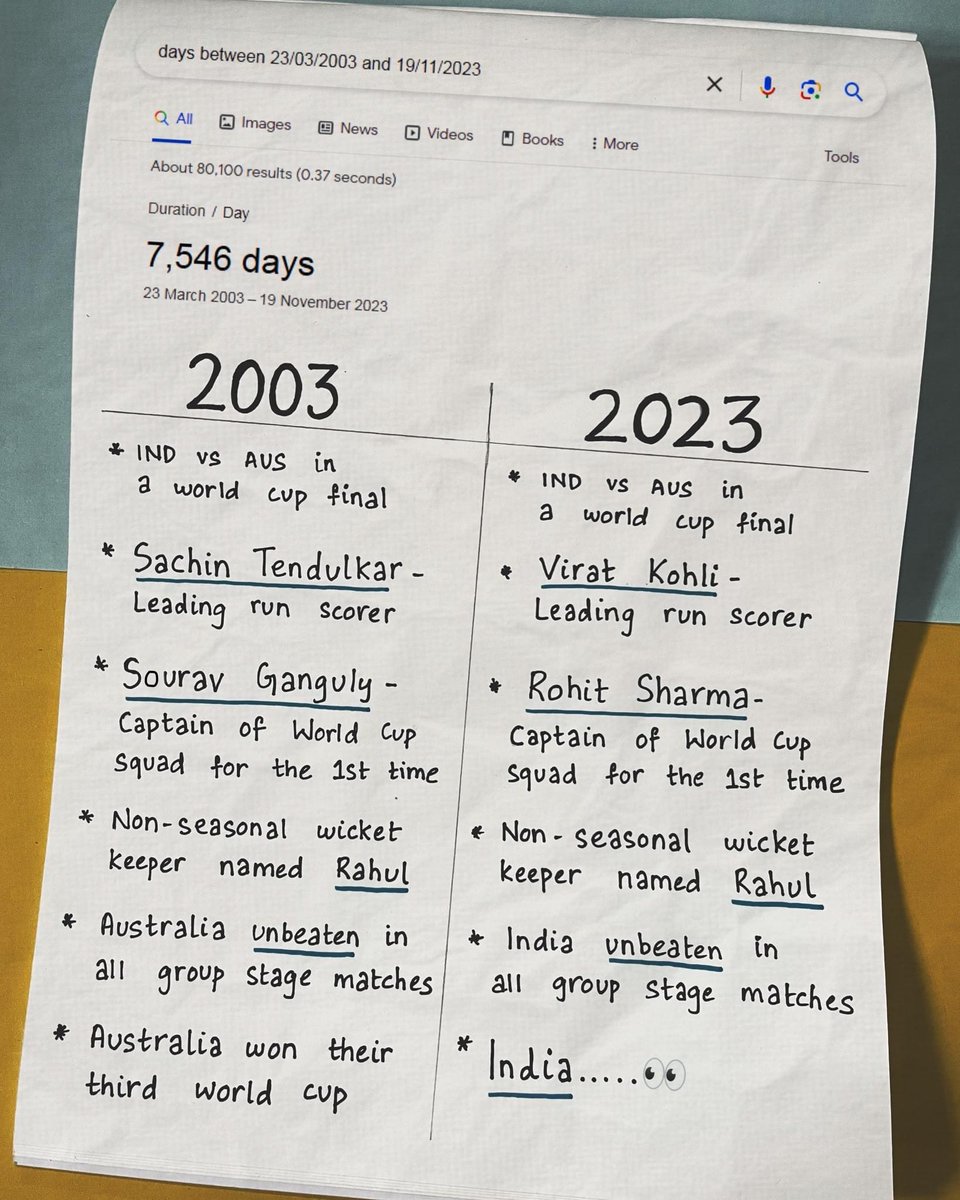 days between 23/03/2003 and 19/11/2023
All Images News Videos Books More Tools
About 80,100 results (0.37 seconds)
Duration / Day
7,546 days
23 March 2003 – 19 November 2023
2003
* IND vs AUS in
a world cup final
* Sachin Tendulkar -
Leading run scorer
* Sourav Ganguly -
Captain of World Cup
squad for the 1st time
* Non-seasonal wicket
keeper named Rahul
* Australia unbeaten in
all group stage matches
* Australia won their
third world cup
2023
* IND vs AUS in
a world cup final
* Virat Kohli -
Leading run scorer
* Rohit Sharma-
Captain of World Cup
squad for the 1st time
* Non-seasonal wicket
keeper named Rahul
* India unbeaten in
all group stage matches
* India.....👀